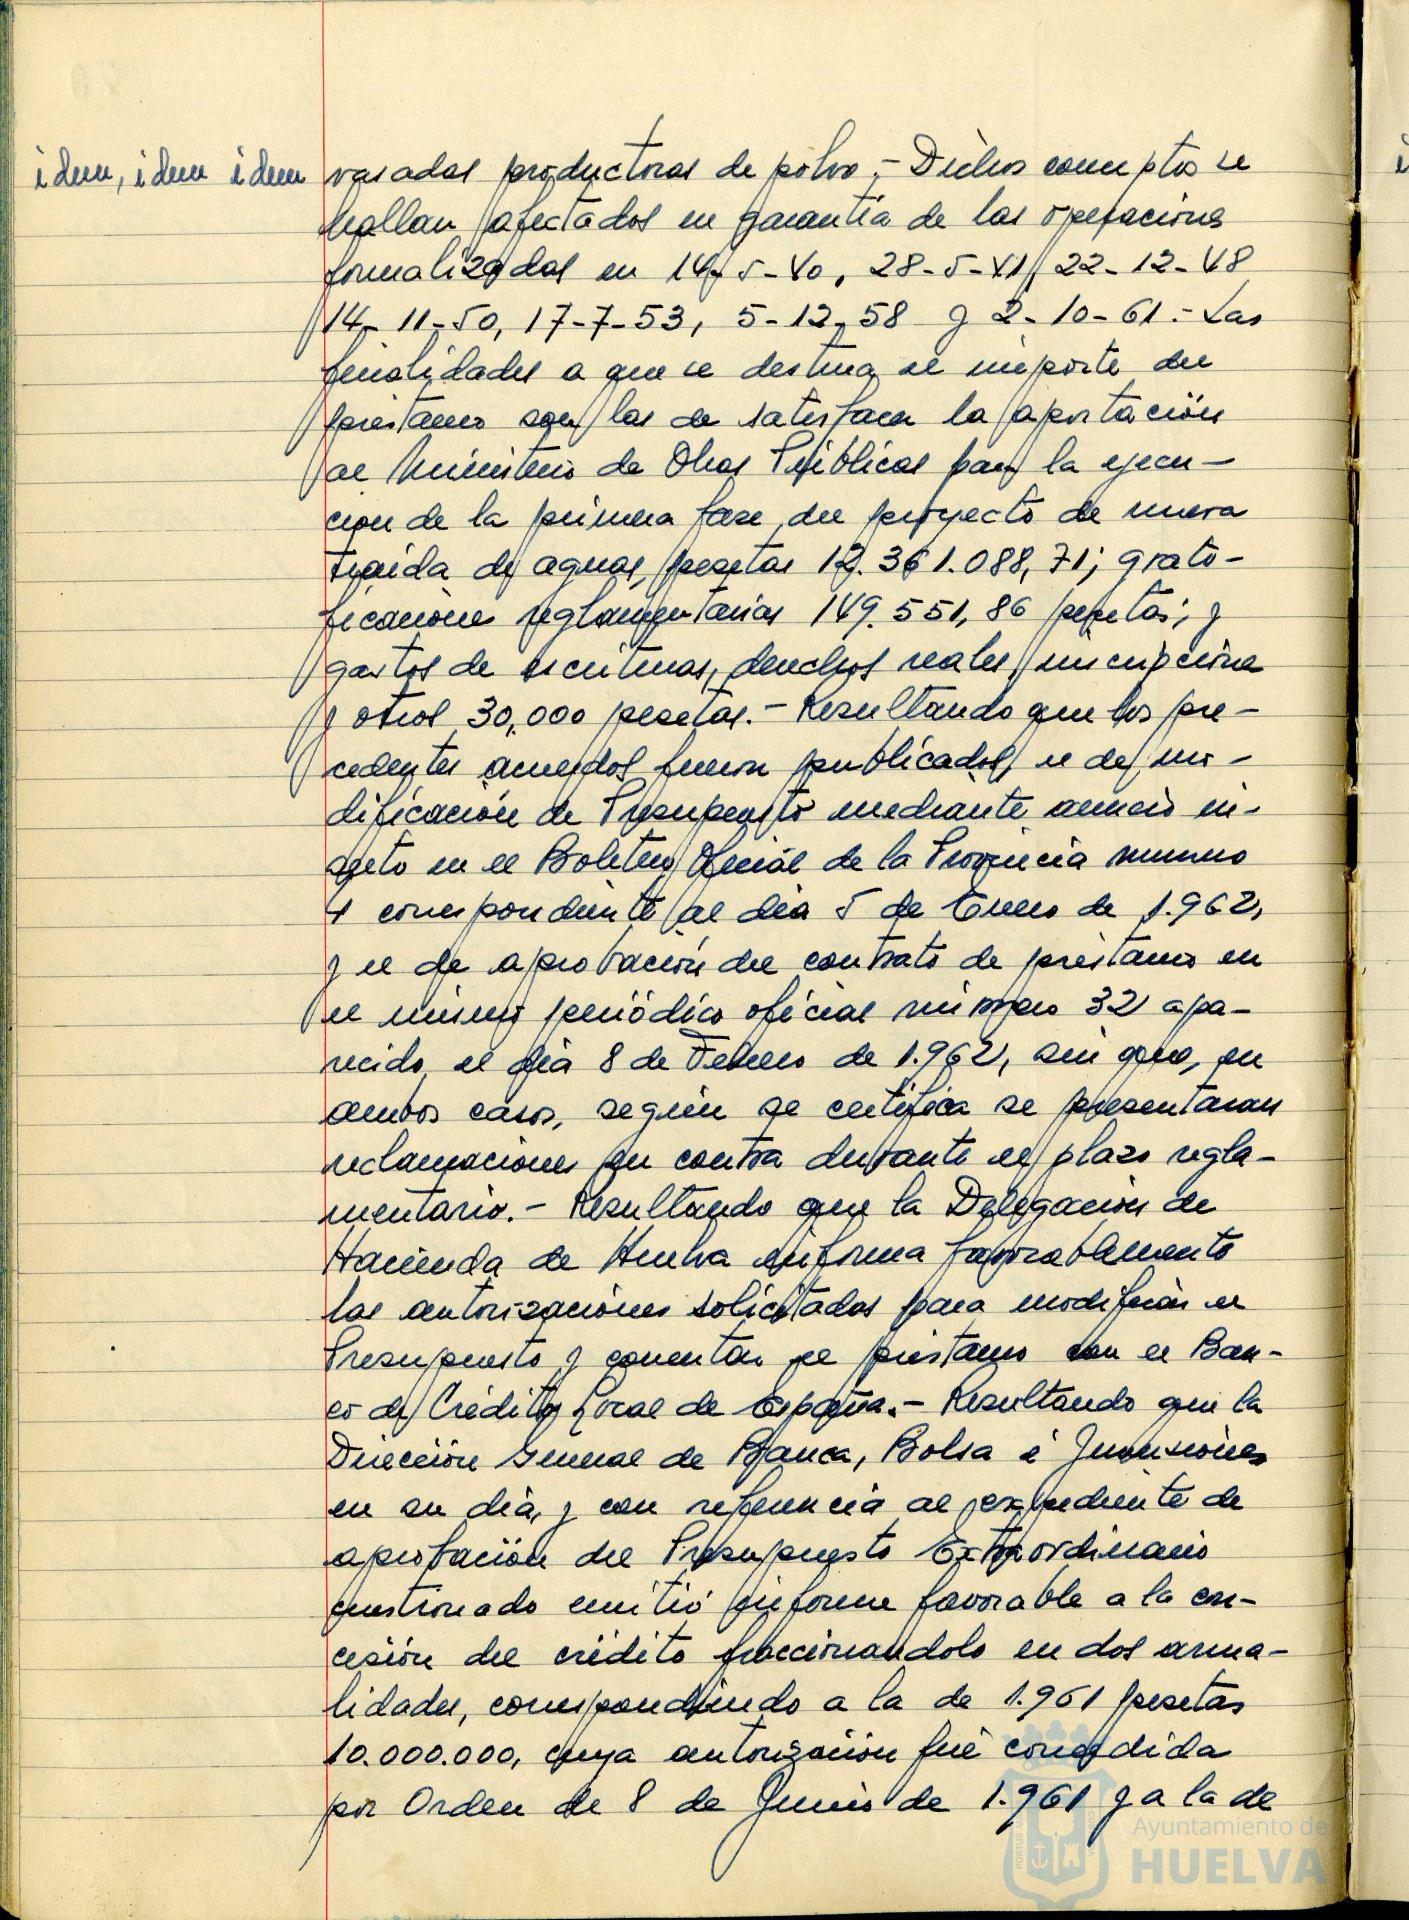 idem, idem idem
vasadas productoras de polvo.- Dichos conceptos se
hallan afectados en garantía de las operaciones
formalizadas en 14-5-40, 28-5-41, 22-12-48
14-11-50, 17-7-53, 5-12-58 y 2-10-61.- Las
finalidades a que se destina el importe del
préstamo son las de satisfacer la aportación
al Ministerio de Obras Públicas para la ejecu-
cion de la primera fase del proyecto de nueva
traida de aguas, pesetas 12.361.088,71; grati-
ficaciones reglamentarias 149.551,86 pesetas; y
gastos de escrituras, derechos reales, inscripciones
y otros 30,000 pesetas.- Resultando que los pre-
cedentes acuerdos fueron publicados, el de mo-
dificación de Presupuesto mediante anuncio in-
serto en el Boletin Oficial de la Provincia numero
4 correspondiente al dia 5 de Enero de 1.962,
y el de aprobación del contrato de préstamo en
el mismo periódico oficial número 32 apa-
recido el dia 8 de Febrero de 1.962, sin que, en
ambos casos, según se certifica se presentaran
reclamaciones en contra durante el plazo regla-
mentario.- Resultando que la Delegación de
Hacienda de Huelva informa favorablemente
las autorizaciones solicitadas para modificar el
Presupuesto y concertar el préstamo con el Ban-
co de Crédito Local de España.- Resultando que la
Dirección General de Banca, Bolsa é Inversiones
en su dia, y con referencia al expediente de
aprobación del Presupuesto Extraordinario
cuestionado emitió informe favorable a la con-
cesión del crédito fraccionandolo en dos anua-
lidades, correspondiendo a la de 1.961 pesetas
10.000.000, cuya autorización fué concedida
por Orden de 8 de Junio de 1.961 y a la de
Ayuntamiento de
HUELVA